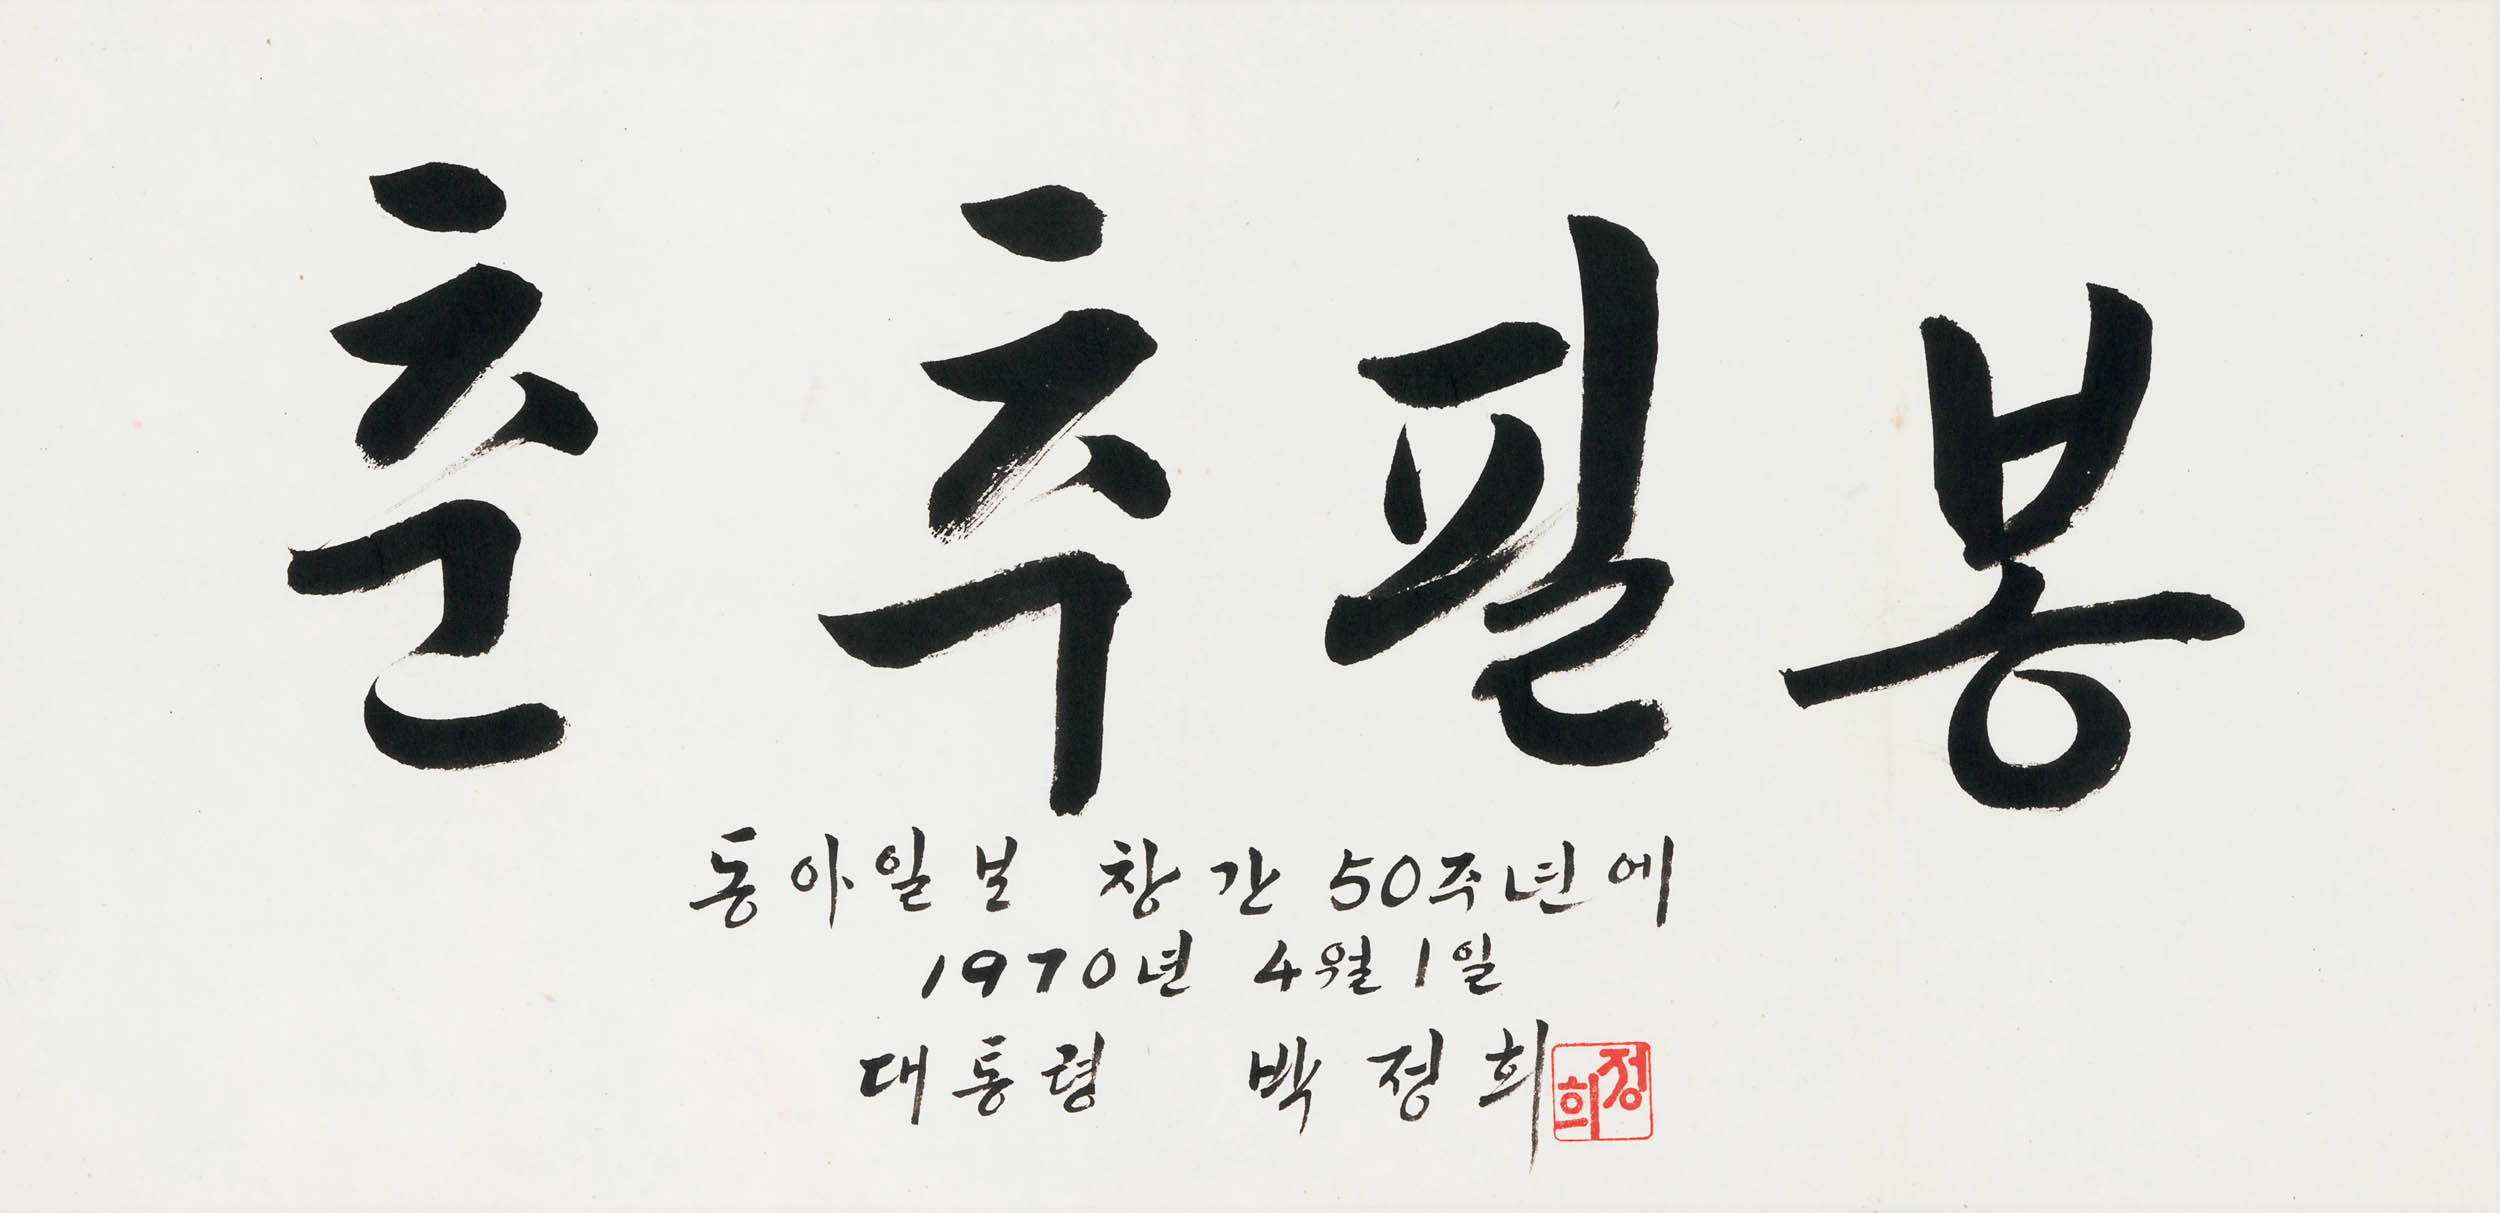 춘추필봉
동아일보 창간 50주년에
1970년 4월 1일
대통령 박정희
정희